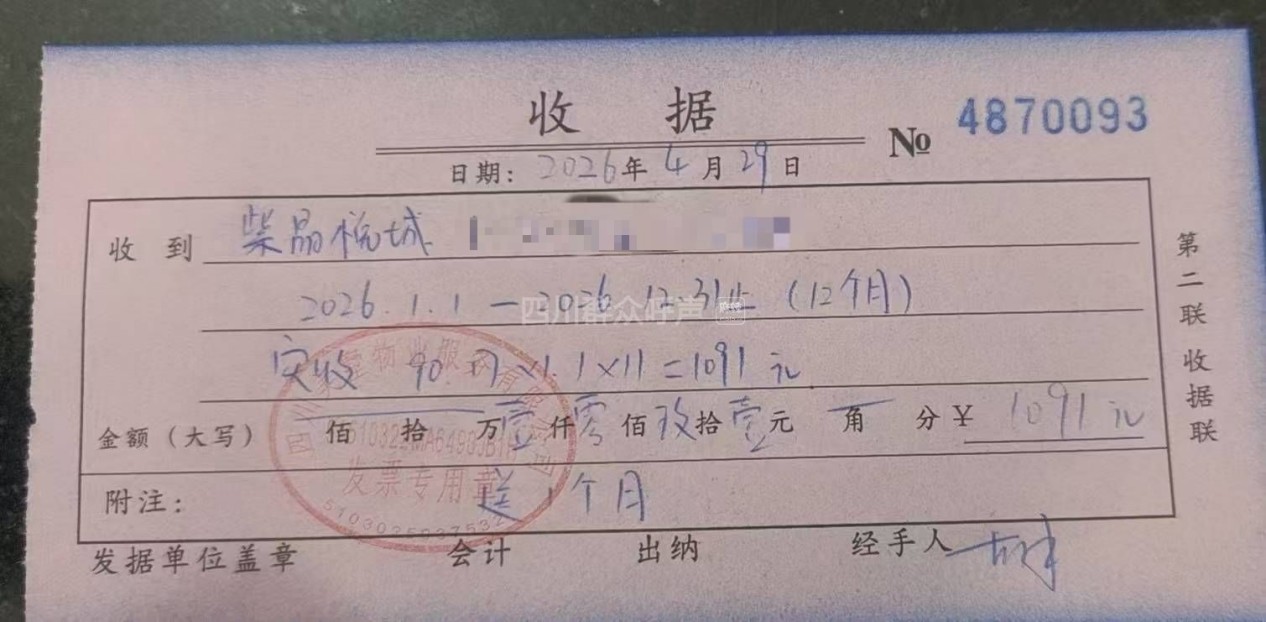 收 据
№ 4870093
日期：2026年4月29日
收到 柴晶悦城
2026.1.1—2026.12.31止（12个月）
实收 90 ×1.1×11=1091元
金额（大写） 佰 拾 万壹仟零佰玖拾壹元 角 分￥1091元
附注： 送1个月
发据单位盖章 会计 出纳 经手人
第二联 收据联
物业服务有限公司
发票专用章
四川群众呼声